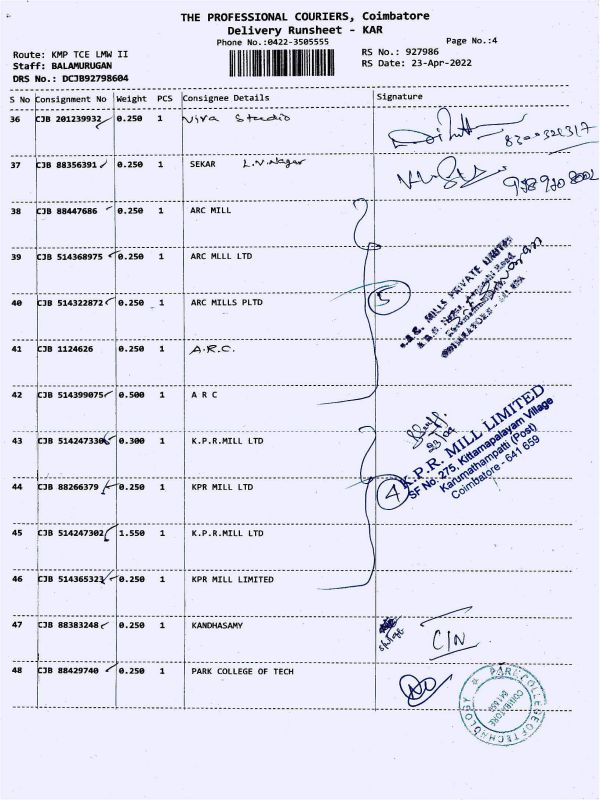 THE PROFESSIONAL COURIERS, Coimbatore
Delivery Runsheet - KAR
Phone No.:0422-3505555
Page No.:4
Route: KMP TCE LMW II
RS No.: 927986
Staff: BALAMURUGAN
RS Date: 23-Apr-2022
DRS No.: DCJB92798604
S No Consignment No Weight PCS Consignee Details Signature
36 CJB 201239932 0.250 1 Viva Studio
37 CJB 88356391 0.250 1 SEKAR L.V.Nagar
38 CJB 88447686 0.250 1 ARC MILL
39 CJB 514368975 0.250 1 ARC MLLL LTD
5
40 CJB 514322872 0.250 1 ARC MILLS PLTD
MILLS PRIVATE LIMITED
41 CJB 1124626 0.250 1 A.R.C.
42 CJB 514399075 0.500 1 A R C
43 CJB 514247330 0.300 1 K.P.R.MILL LTD
K.P.R. MILL LIMITED
SF No. 275, Kittampalayam Village
Karumathampatti (Post)
Coimbatore - 641 659
4
44 CJB 88266379 0.250 1 KPR MILL LTD
45 CJB 514247302 1.550 1 K.P.R.MILL LTD
46 CJB 514365323 0.250 1 KPR MILL LIMITED
47 CJB 88383248 0.250 1 KANDHASAMY
C/N
48 CJB 88429740 0.250 1 PARK COLLEGE OF TECH
PARK COLLEGE OF TECHNOLOGY
COIMBATORE